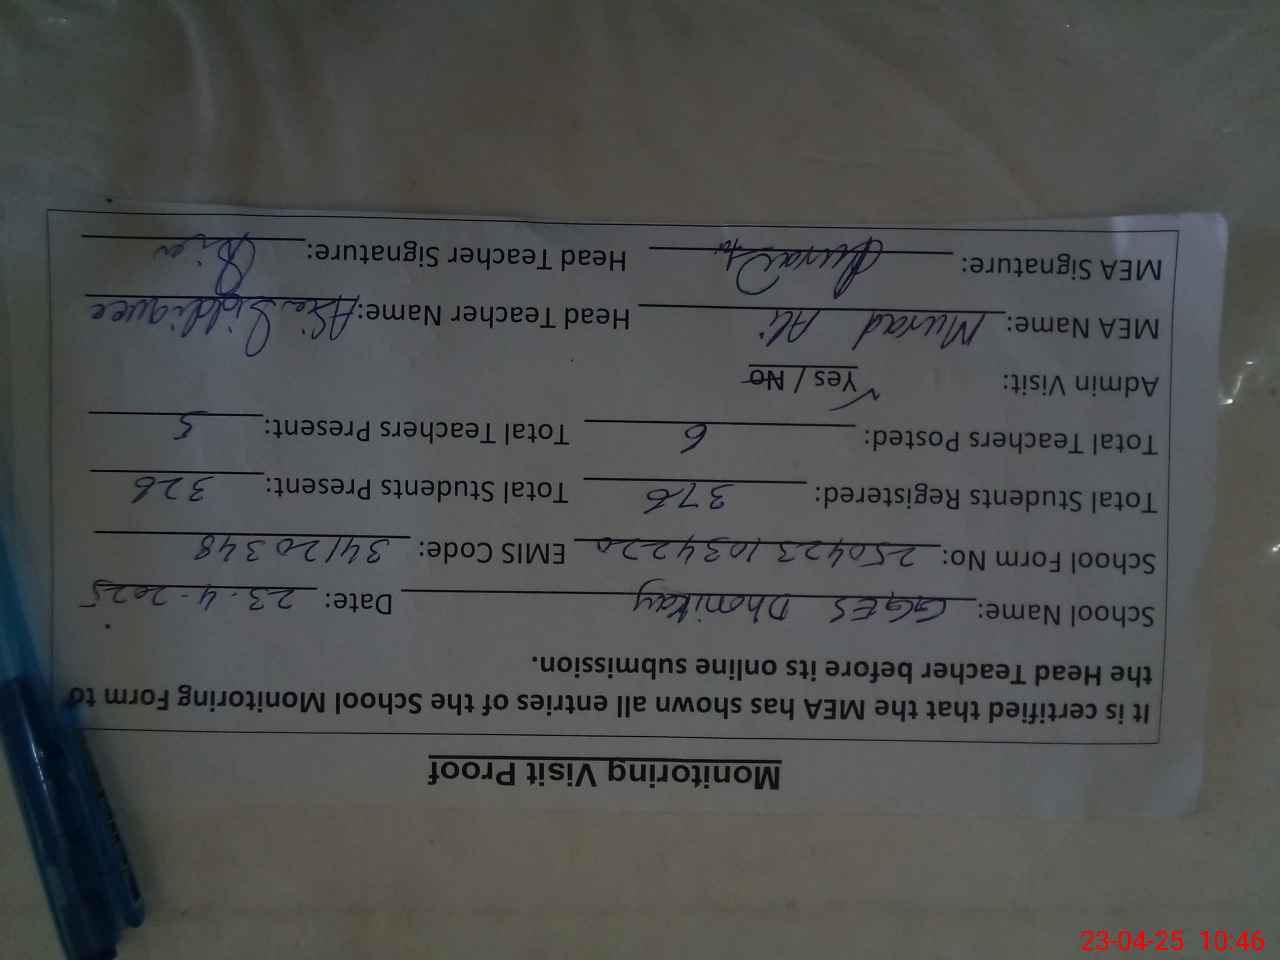 Monitoring Visit Proof
It is certified that the MEA has shown all entries of the School Monitoring Form to
the Head Teacher before its online submission.
School Name: GGES Dhonikay Date: 23-4-2025
School Form No: 250423 1034220 EMIS Code: 34120348
Total Students Registered: 376 Total Students Present: 326
Total Teachers Posted: 6 Total Teachers Present: 5
Admin Visit: Yes / No
MEA Name: Murad Ali Head Teacher Name: Asia Siddiquee
MEA Signature: Head Teacher Signature:
23-04-25 10:46